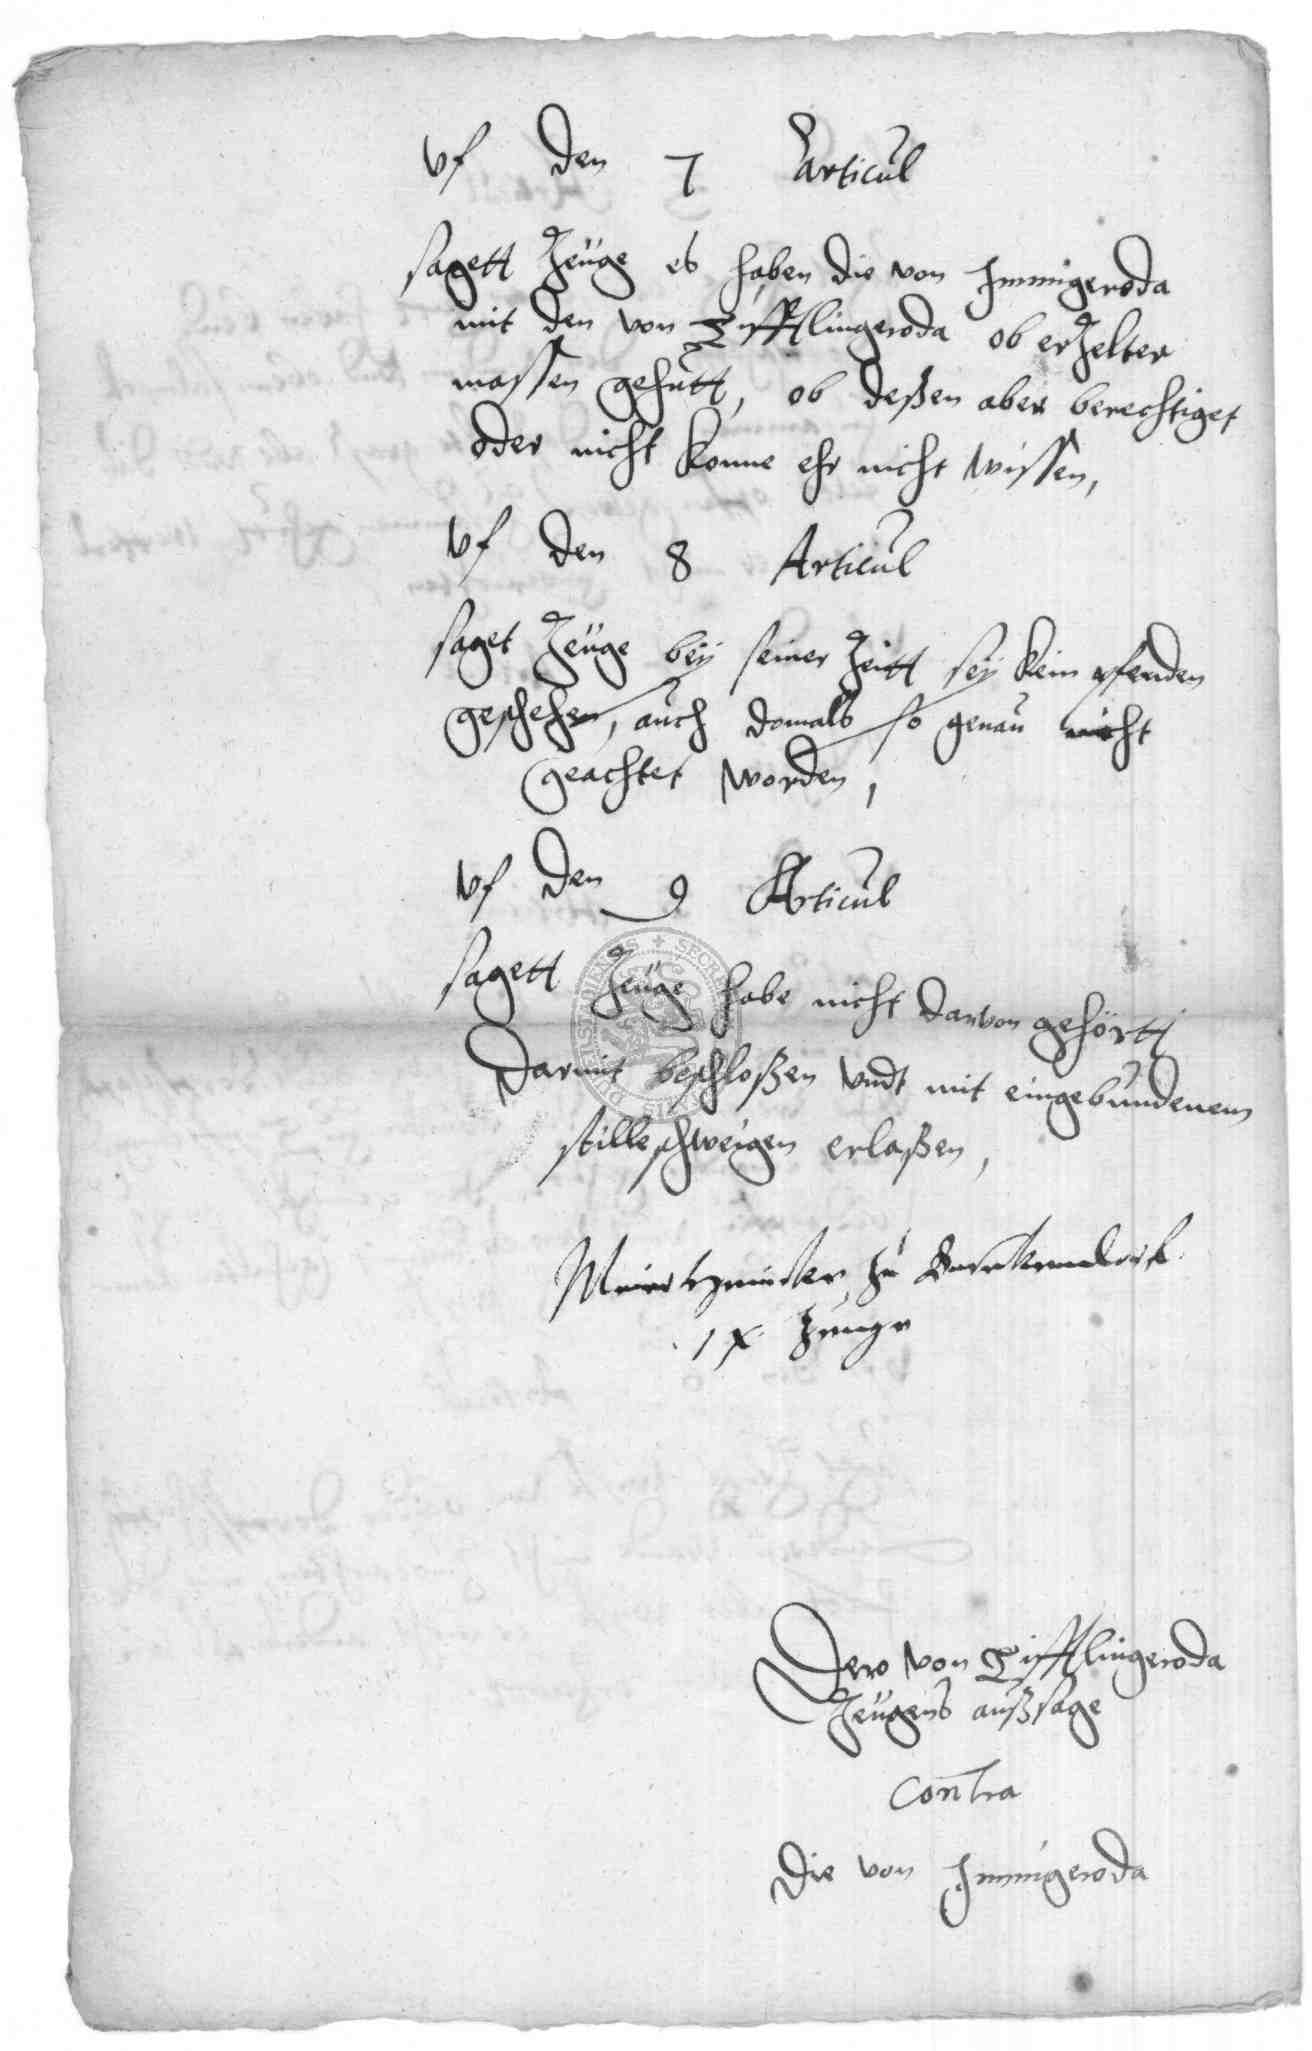 Vf den 7 Articul
sagett Zeuge es haben die von Immigeroda
mit den von Tifftlingeroda ob erZelter
massen gehutt, ob deßen aber berechtiget
oder nicht konne ehr nicht wissen,
Vf den 8 Articul
saget Zeuge beÿ seiner Zeitt seÿ kein pfenden
geschehen, auch domals so genau nicht
geachtet worden,
Vf den 9 Articul
sagett Zeuge habe nicht darvon gehörtt
Darmit beschloßen Vndt mit eingebundenem
stilleschweigen erlaßen,
zu
Zeuge
Dero von Tifftlingeroda
Zeugens außsage
Contra
Die von Immigeroda